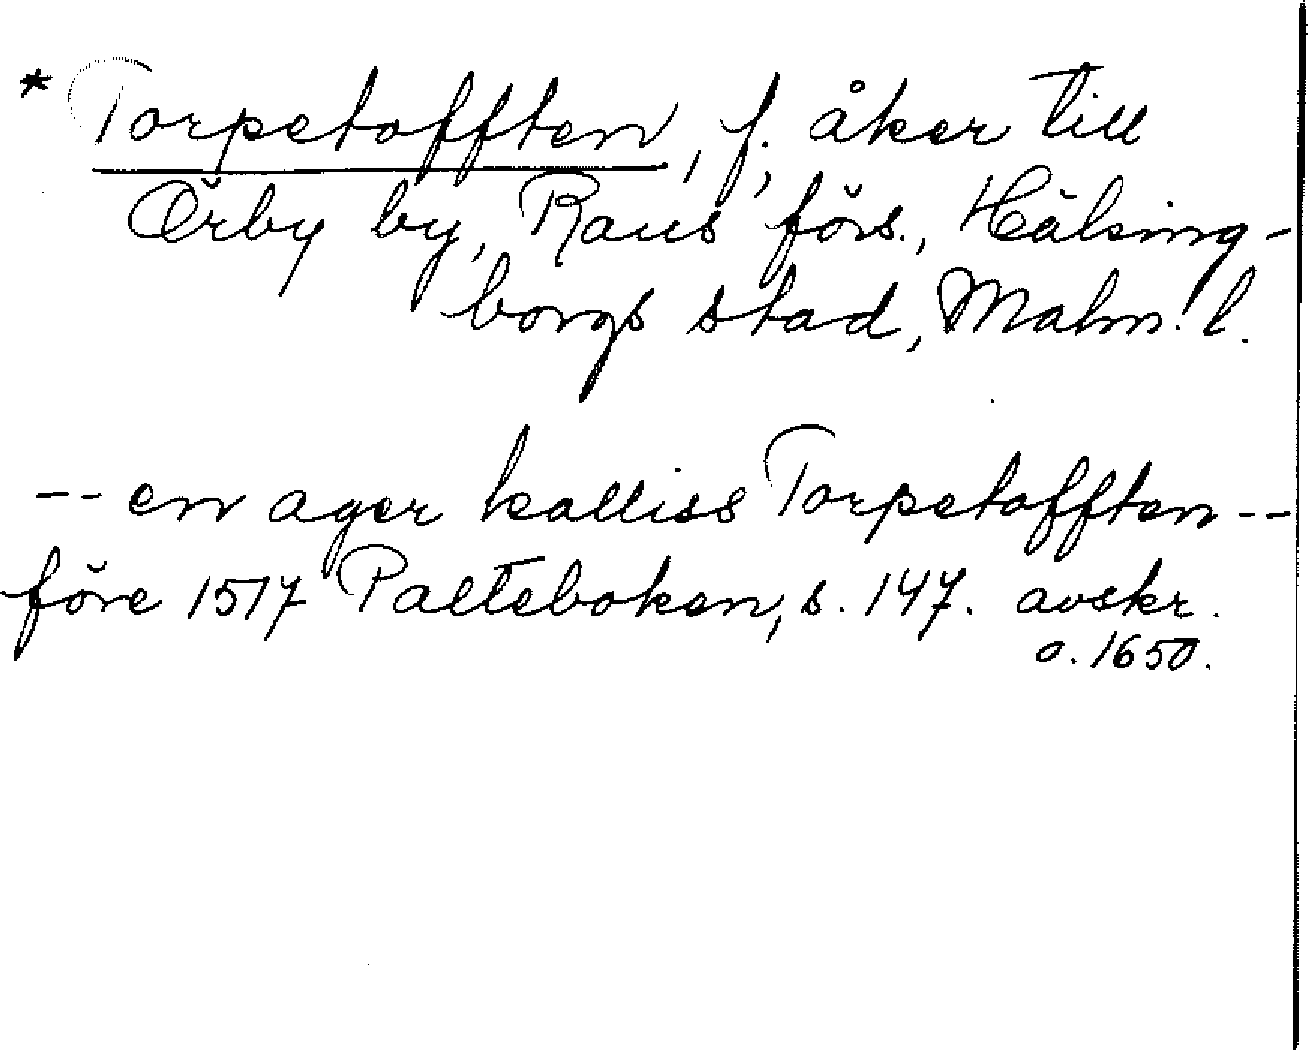 * Torpetofften, f. åker till
Örby by, Raus förs., Hälsing-
borgs stad, Malm. l.
-- en ager kalliss Torpetofften --
före 1517 Palteboken, s. 147. avskr.
o. 1650.